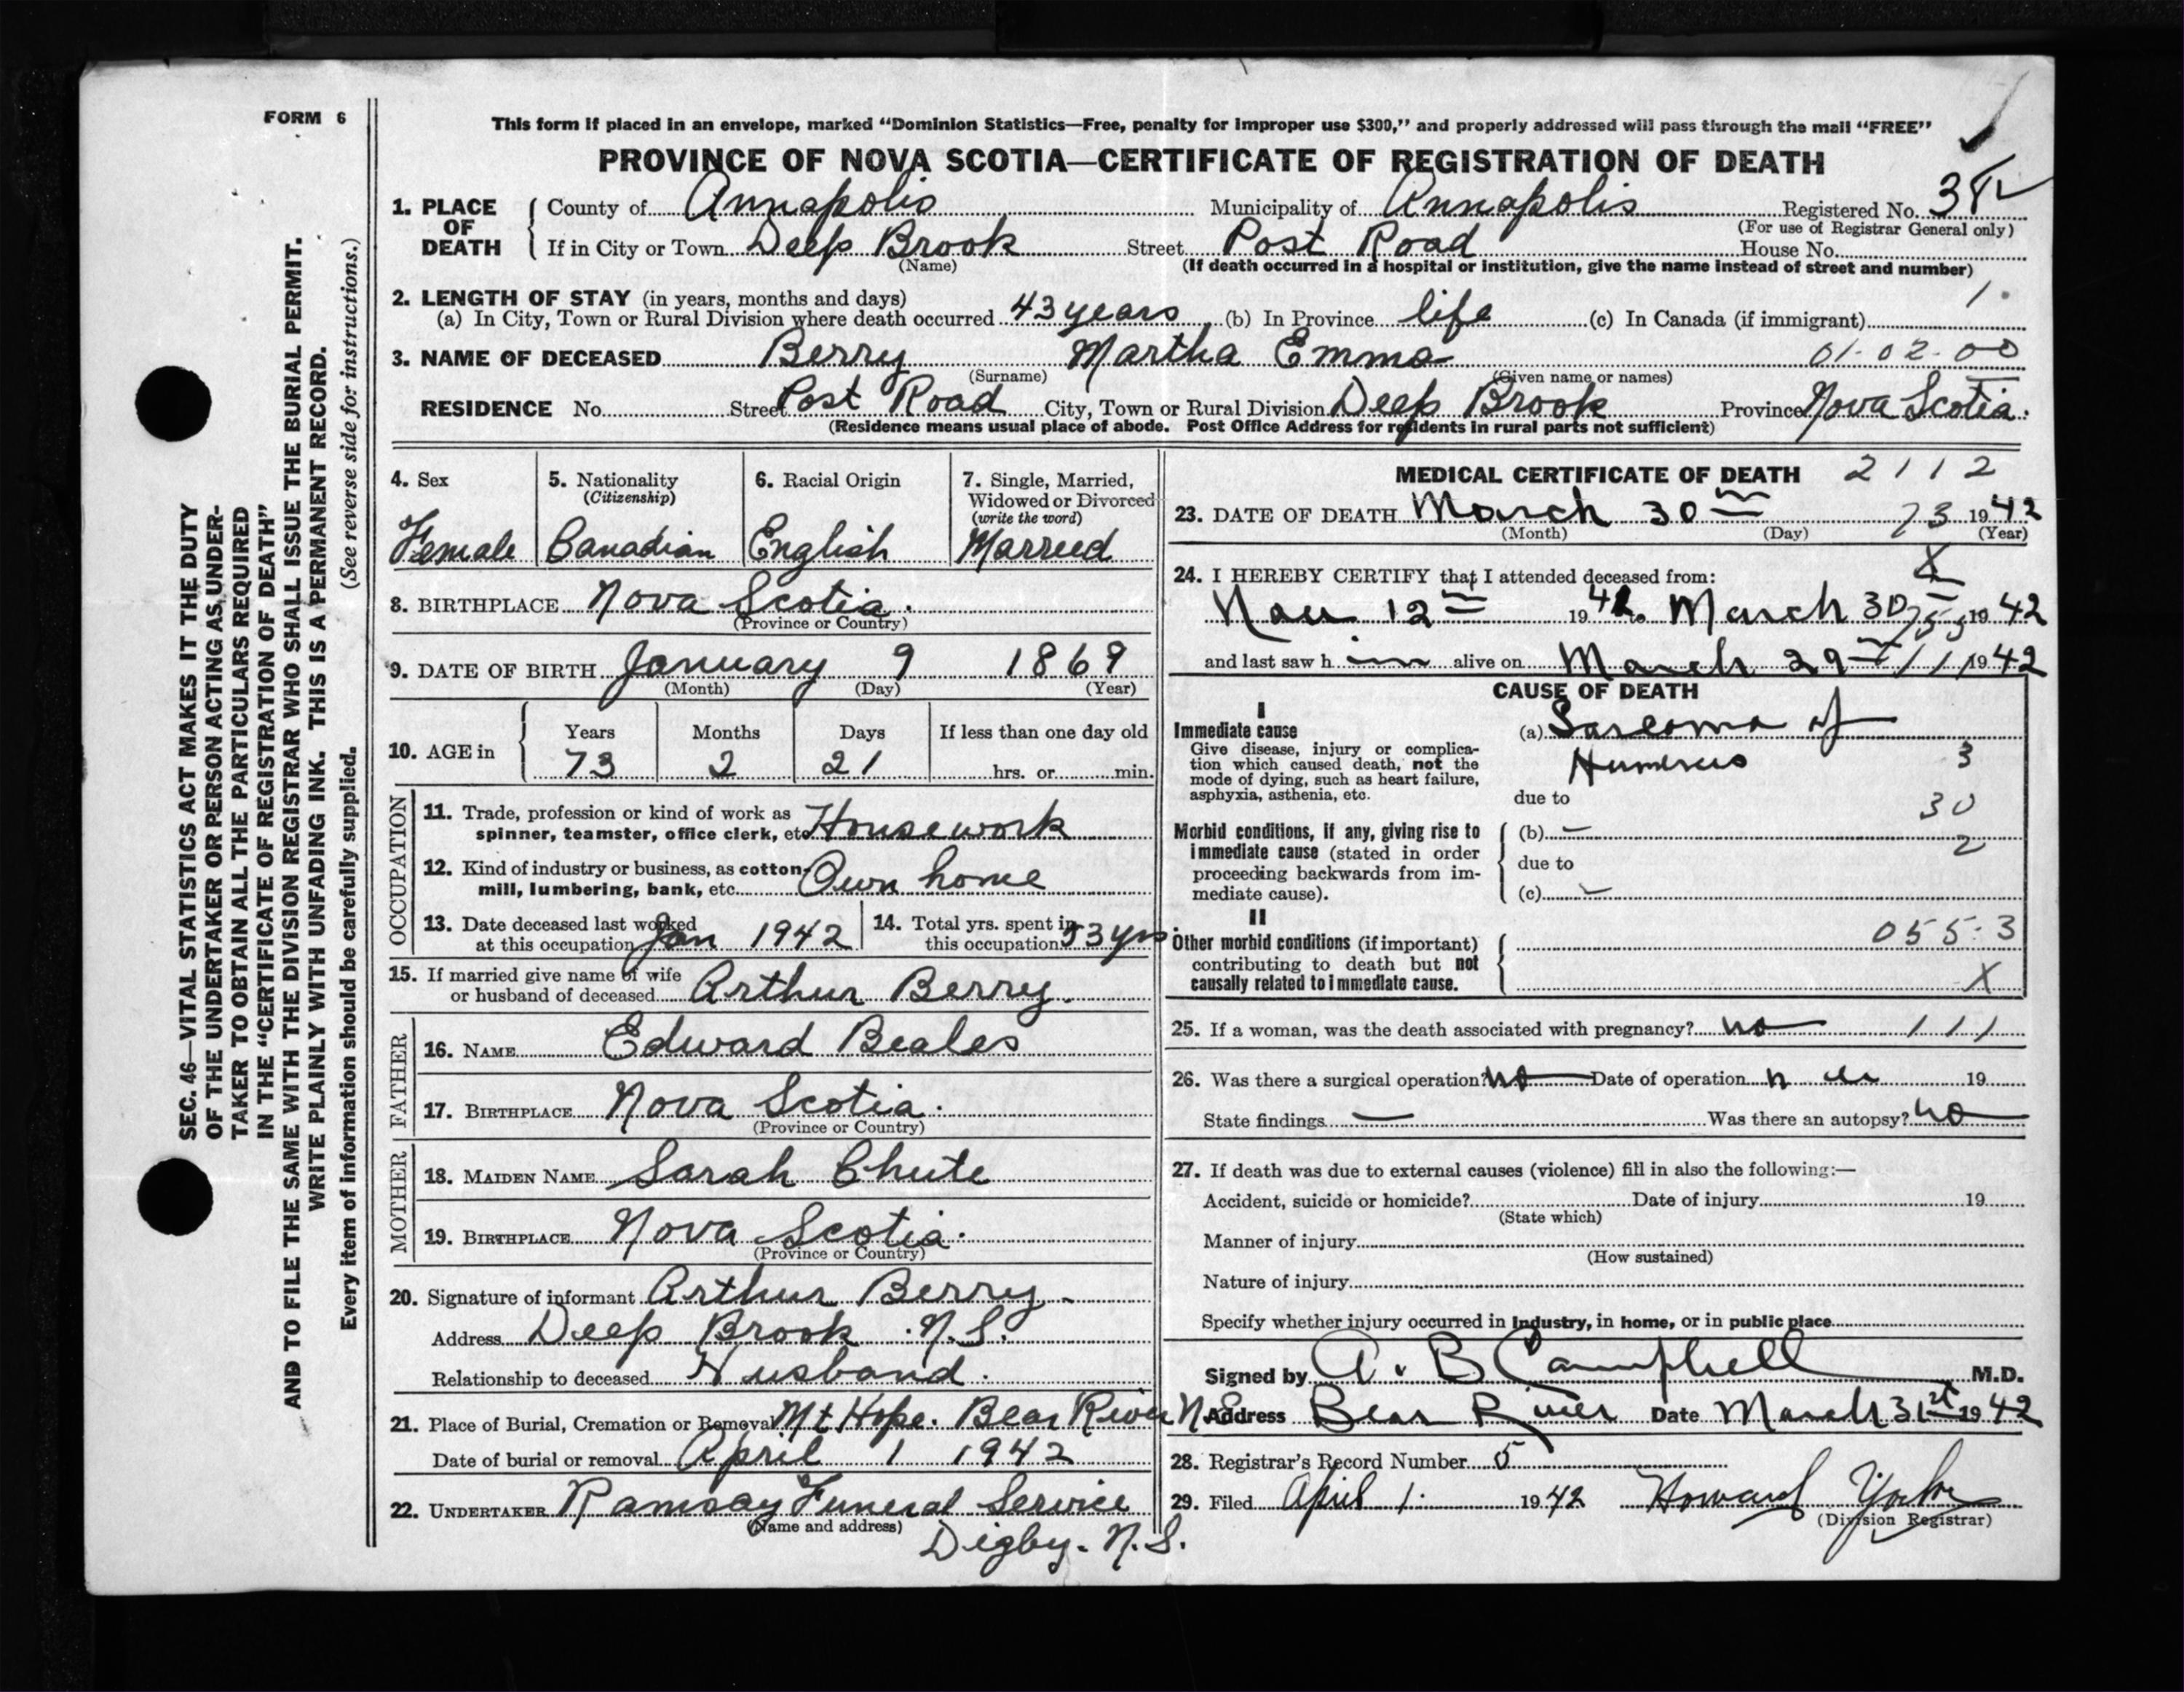 FORM 6
This form if placed in an envelope, marked “Dominion Statistics—Free, penalty for improper use $300,” and properly addressed will pass through the mail “FREE”
PROVINCE OF NOVA SCOTIA—CERTIFICATE OF REGISTRATION OF DEATH
1. PLACE OF DEATH County of Annapolis Municipality of Annapolis Registered No.
(For use of Registrar General only)
If in City or Town Deep Brook Street Post Road House No.
(Name) (If death occurred in a hospital or institution, give the name instead of street and number)
2. LENGTH OF STAY (in years, months and days) 1.
(a) In City, Town or Rural Division where death occurred 43 years (b) In Province life (c) In Canada (if immigrant)
3. NAME OF DECEASED Berry Martha Emma 01-02-00
(Surname) (Given name or names)
RESIDENCE No. Street Post Road City, Town or Rural Division Deep Brook Province Nova Scotia.
(Residence means usual place of abode. Post Office Address for residents in rural parts not sufficient)
4. Sex
Female
5. Nationality
(Citizenship)
Canadian
6. Racial Origin
English
7. Single, Married,
Widowed or Divorced
(write the word)
Married
8. BIRTHPLACE Nova Scotia.
(Province or Country)
9. DATE OF BIRTH January 9 1869
(Month) (Day) (Year)
10. AGE in Years Months Days If less than one day old
73 2 21 hrs. or min.
OCCUPATION
11. Trade, profession or kind of work as
spinner, teamster, office clerk, etc Housework
12. Kind of industry or business, as cotton-
mill, lumbering, bank, etc. Own home
13. Date deceased last worked
at this occupation Jan 1942
14. Total yrs. spent in
this occupation 53 yrs
15. If married give name of wife
or husband of deceased Arthur Berry.
FATHER
16. NAME Edward Beales
17. BIRTHPLACE Nova Scotia.
(Province or Country)
MOTHER
18. MAIDEN NAME Sarah Chute
19. BIRTHPLACE Nova Scotia.
(Province or Country)
20. Signature of informant Arthur Berry.
Address Deep Brook N.S.
Relationship to deceased Husband.
21. Place of Burial, Cremation or Removal Mt Hope. Bear River N.S.
Date of burial or removal April 1 1942
22. UNDERTAKER Ramsay Funeral Service
(Name and address)
Digby. N.S.
MEDICAL CERTIFICATE OF DEATH 2112
23. DATE OF DEATH March 30 73 1942
(Month) (Day) (Year)
X
24. I HEREBY CERTIFY that I attended deceased from:
12 19 to March 30 1942
and last saw h im alive on March 29 1942
CAUSE OF DEATH
I
Immediate cause
Give disease, injury or complica-
tion which caused death, not the
mode of dying, such as heart failure,
asphyxia, asthenia, etc.
(a) Sarcoma of
Humerus 3
due to 30
Morbid conditions, if any, giving rise to
immediate cause (stated in order
proceeding backwards from im-
mediate cause).
(b) — 2
due to
(c) —
II
Other morbid conditions (if important)
contributing to death but not
causally related to immediate cause.
055.3
X
25. If a woman, was the death associated with pregnancy? no 111
26. Was there a surgical operation? no Date of operation 19
State findings — Was there an autopsy? no
27. If death was due to external causes (violence) fill in also the following:—
Accident, suicide or homicide? Date of injury 19
(State which)
Manner of injury
(How sustained)
Nature of injury
Specify whether injury occurred in industry, in home, or in public place
Signed by A. B Campbell M.D.
Address Bear River Date March 31st 1942
28. Registrar's Record Number 5
29. Filed April 1. 1942 Howard
(Division Registrar)
SEC. 46—VITAL STATISTICS ACT MAKES IT THE DUTY
OF THE UNDERTAKER OR PERSON ACTING AS UNDER-
TAKER TO OBTAIN ALL THE PARTICULARS REQUIRED
IN THE “CERTIFICATE OF REGISTRATION OF DEATH”
AND TO FILE THE SAME WITH THE DIVISION REGISTRAR WHO SHALL ISSUE THE BURIAL PERMIT.
WRITE PLAINLY WITH UNFADING INK. THIS IS A PERMANENT RECORD.
Every item of information should be carefully supplied. (See reverse side for instructions.)